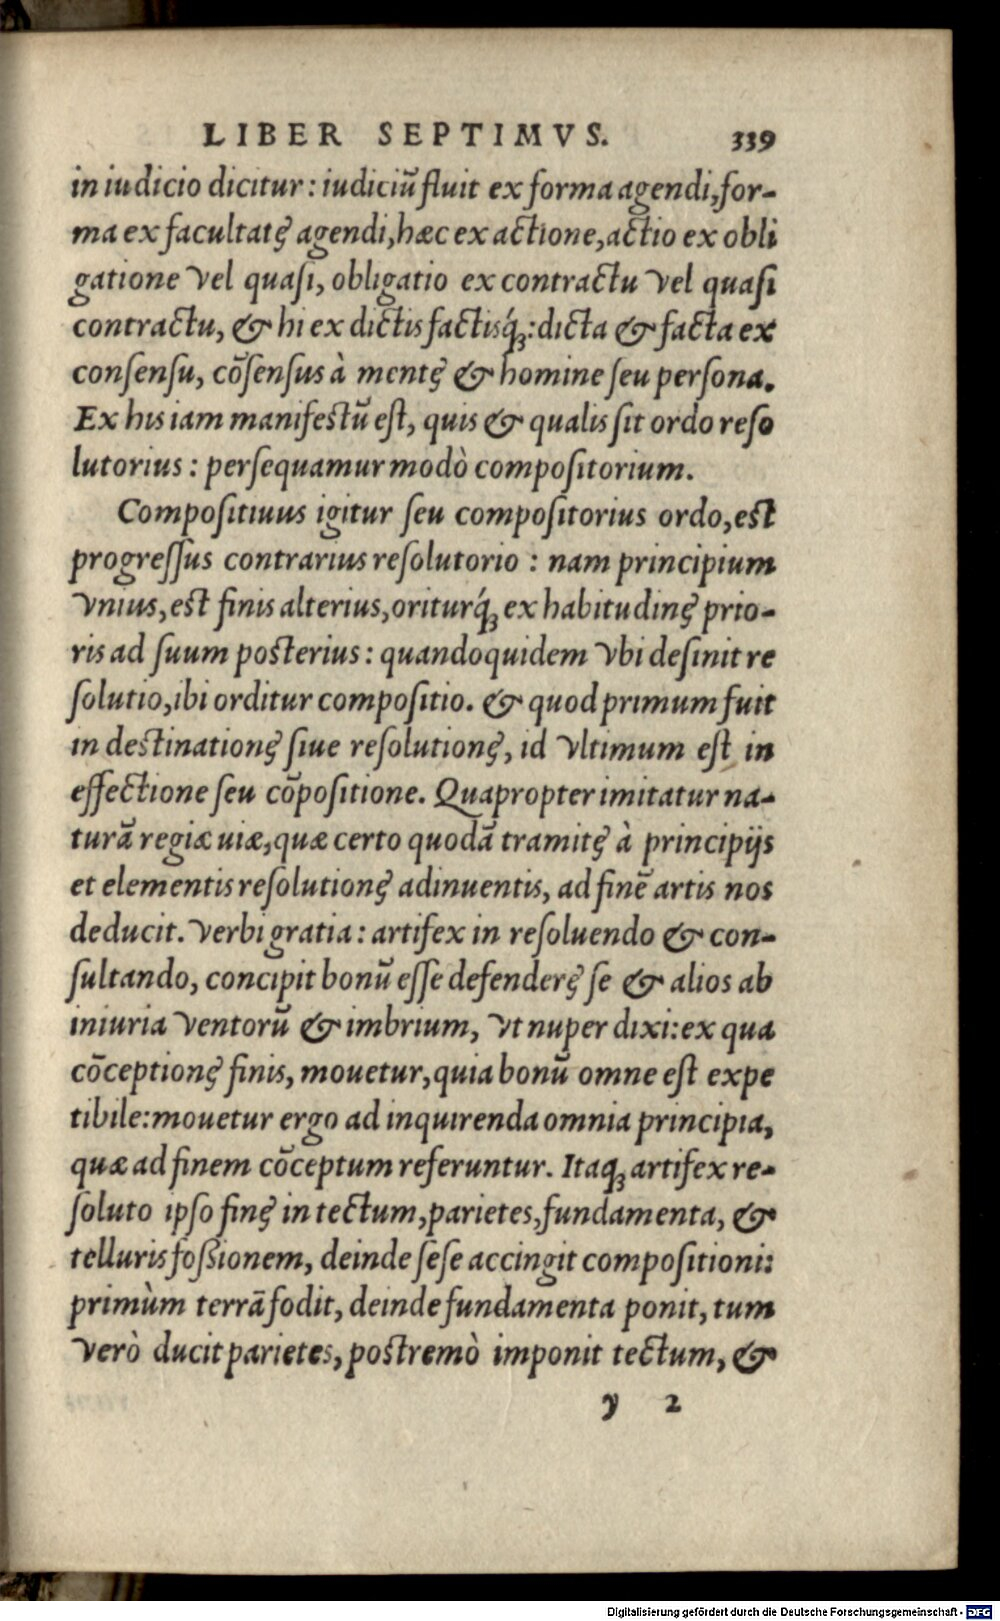 LIBER SEPTIMVS. 339
in iudicio dicitur: iudiciū fluit ex forma agendi, for-
ma ex facultatę agendi, hæc ex actione, actio ex obli
gatione vel quasi, obligatio ex contractu vel quasi
contractu, & hi ex dictis factisq́;: dicta & facta ex
consensu, cōsensus à mentę & homine seu persona.
Ex his iam manifestū est, quis & qualis sit ordo reso
lutorius: persequamur modò compositorium.
Compositiuus igitur seu compositorius ordo, est
progressus contrarius resolutorio: nam principium
vnius, est finis alterius, oriturq́; ex habitudinę prio-
ris ad suum posterius: quandoquidem vbi desinit re
solutio, ibi orditur compositio. & quod primum fuit
in destinationę siue resolutionę, id vltimum est in
effectione seu cōpositione. Quapropter imitatur na-
turā regiæ uiæ, quæ certo quodā tramitę à principijs
et elementis resolutionę adinuentis, ad finē artis nos
deducit. Verbi gratia: artifex in resoluendo & con-
sultando, concipit bonū esse defenderę se & alios ab
iniuria ventorū & imbrium, vt nuper dixi: ex qua
cōceptionę finis, mouetur, quia bonū omne est expe
tibile: mouetur ergo ad inquirenda omnia principia,
quæ ad finem cōceptum referuntur. Itaq; artifex re-
soluto ipso finę in tectum, parietes, fundamenta, &
telluris fossionem, deinde sese accingit compositioni:
primùm terrā fodit, deinde fundamenta ponit, tum
verò ducit parietes, postremò imponit tectum, &
y 2
Digitalisierung gefördert durch die Deutsche Forschungsgemeinschaft - DFG